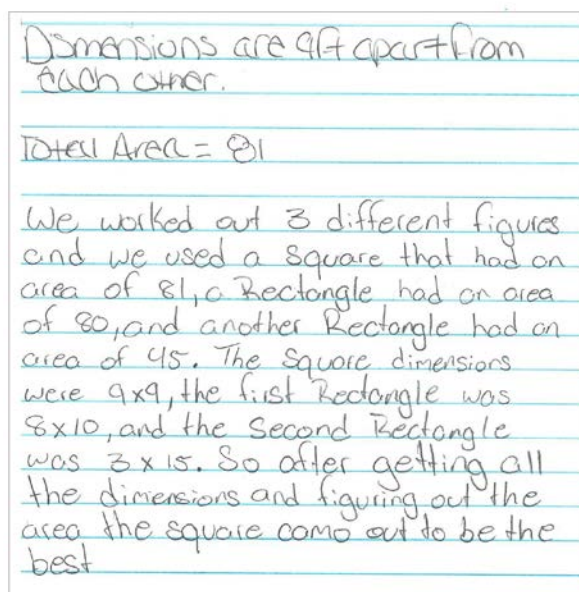 Dimensions are 9ft apart from
each other.
Total Area = 81
We worked out 3 different figures
and we used a square that had an
area of 81, a Rectangle had an area
of 80, and another Rectangle had an
area of 45. The square dimensions
were 9x9, the first Rectangle was
8x10, and the Second Rectangle
was 3 x 15. So after getting all
the dimensions and figuring out the
area the square came out to be the
best